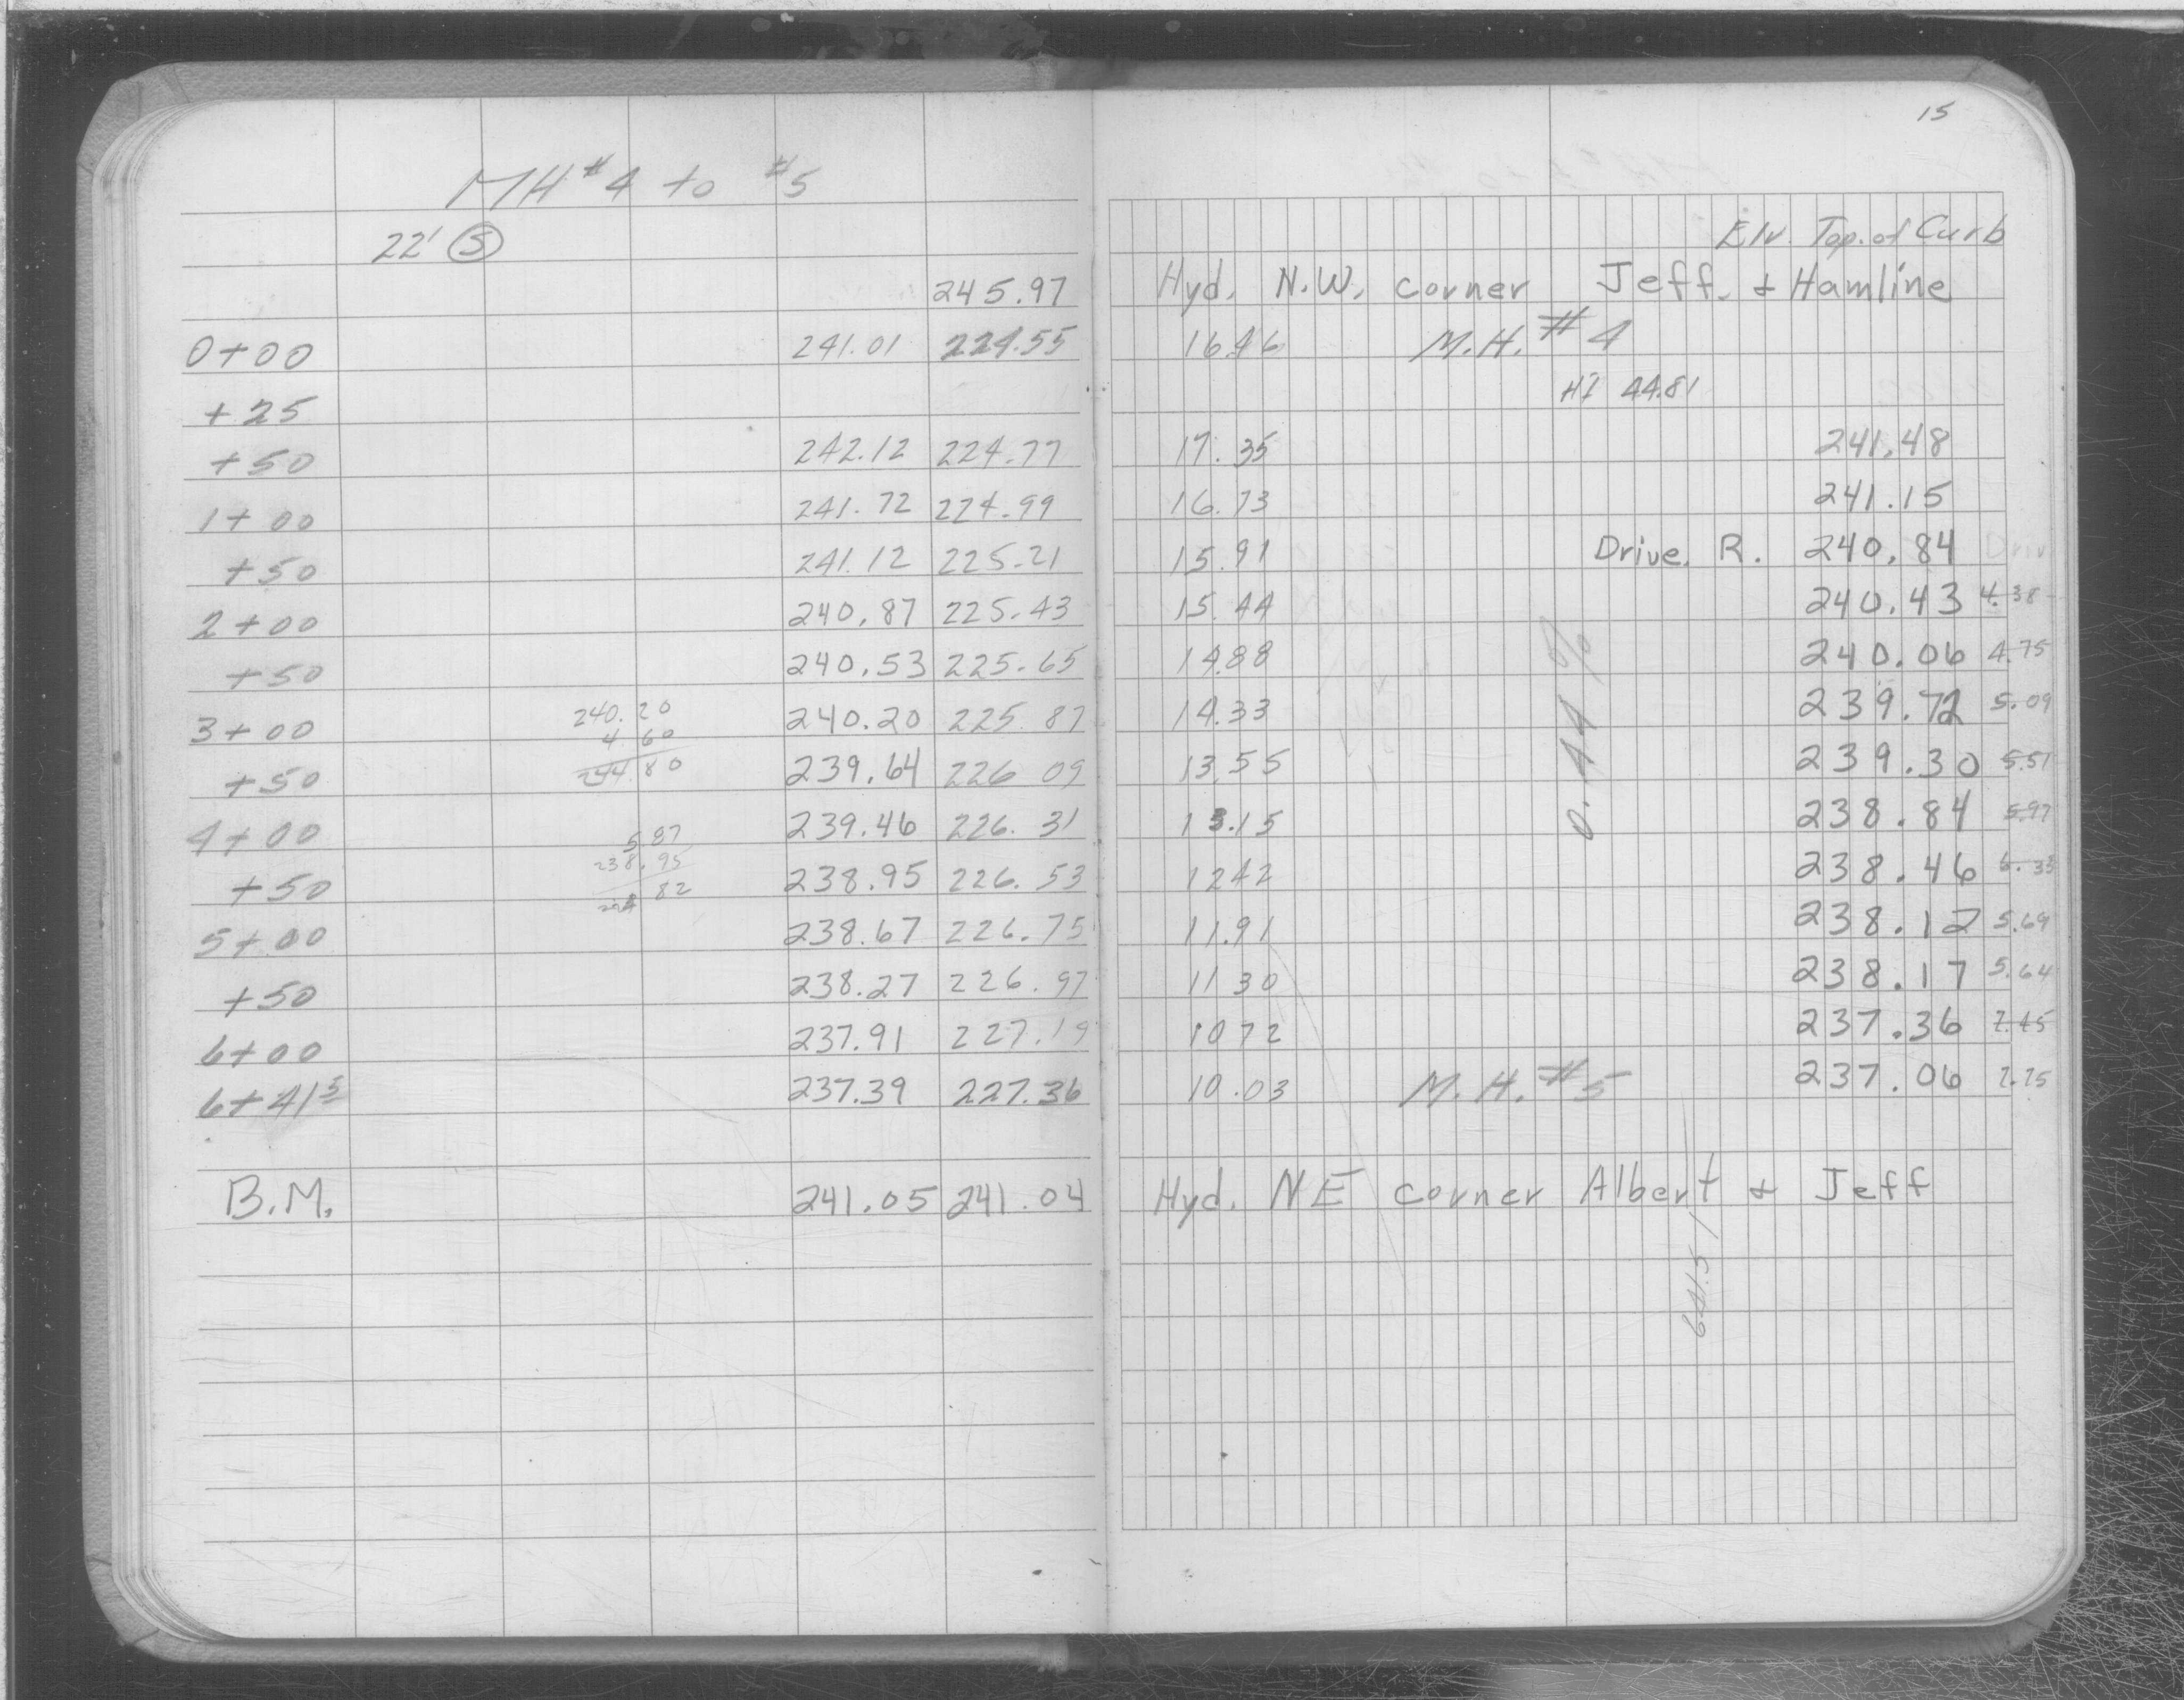 15
MH #4 to #5
22' S
Elv. Top. of Curb
245.97 Hyd. N.W. corner Jeff. + Hamline
0+00 241.01 224.55 16.46 M.H. #4
+25 HI 44.81
+50 242.12 224.77 17.35 241.48
1+00 241.72 224.99 16.73 241.15
+50 241.12 225.21 15.91 Drive. R. 240.84
2+00 240.87 225.43 15.44 240.43 4.38
+50 240.53 225.65 14.88 240.06 4.75
3+00 240.20 240.20 225.87 14.33 239.72 5.09
4 60
244.80
+50 239.64 226 09 13.55 239.30 5.51
4+00 239.46 226.31 13.15 238.84 5.97
5.87
238.95
82
+50 238.95 226.53 12 42 238.46 6.35
5+00 238.67 226.75 11.91 238.12 5.69
+50 238.27 226.97 11 30 238.17 5.64
6+00 237.91 227.19 10 72 237.36 7.45
6+41⁵ 237.39 227.36 10.03 M.H. #5 237.06 7.75
0.44 %
B.M. 241.05 241.04 Hyd. NE corner Albert + Jeff
641.5